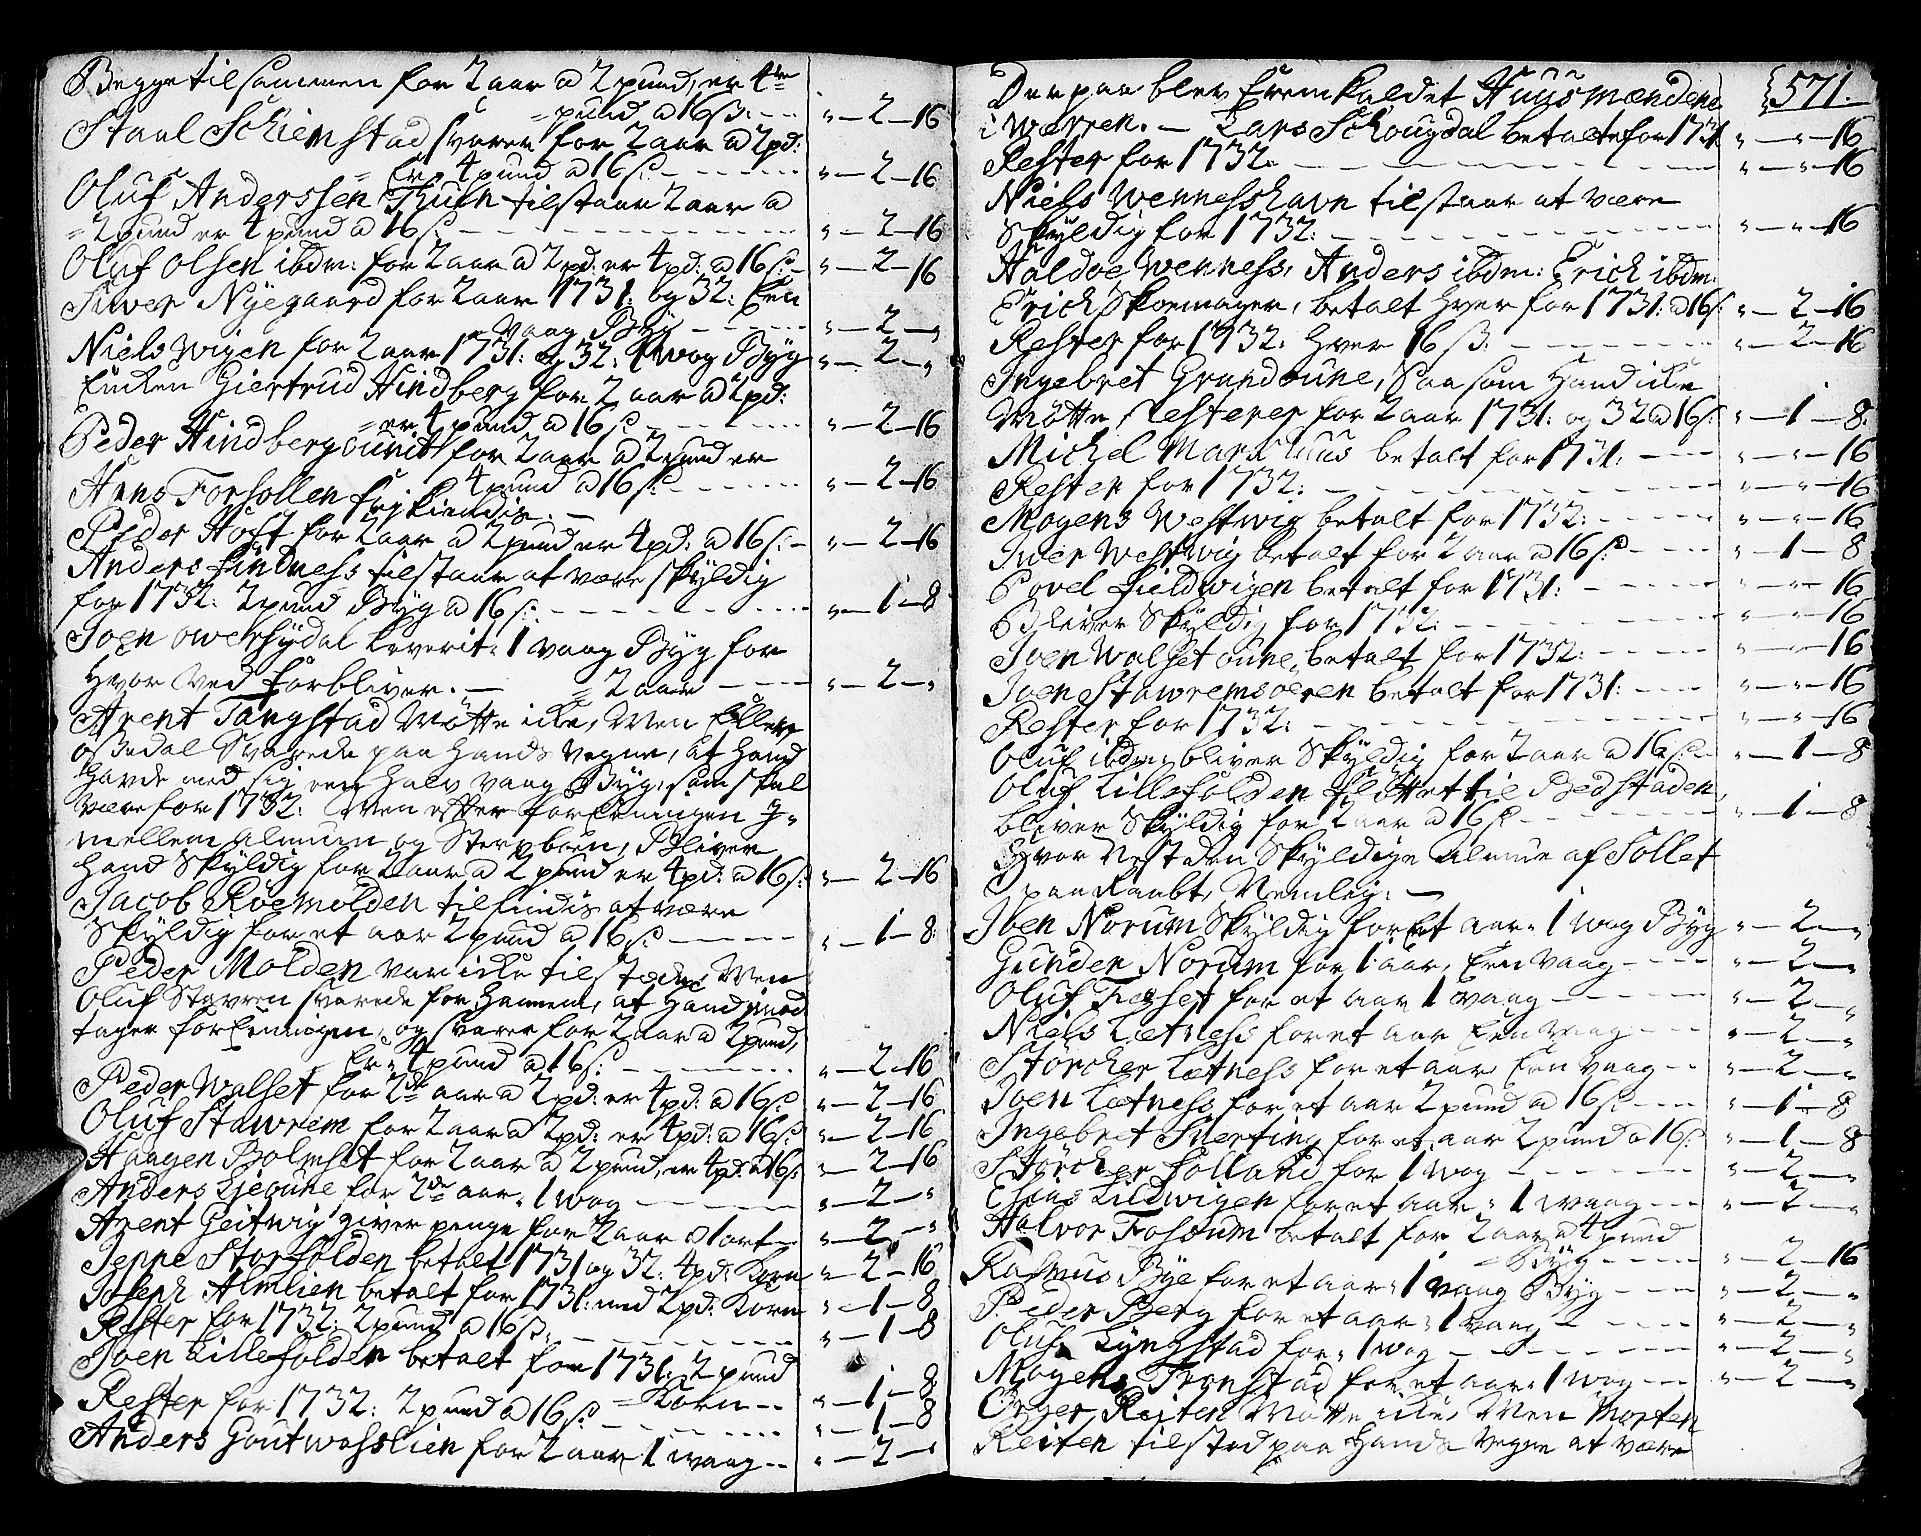 Begge til sammen for 2 aar a 2 pund, er 4re
= pund a 16 ß: --- „ — 2 — 16
Staal Schiemstad svarer for 2 aar a 2 pd:
= Er 4 pund a 16 ß. --- „ — 2 — 16
Oluf Anderssen Thuen tilstaar 2 aar a
= 2 pund er 4 pund a 16 ß --- „ — 2 — 16
Oluf Olsen ibdm: for 2 aar a 2 pd: er 4 pd: a 16 ß. „ — 2 — 16
Siver Nyegaard for 2 aar 1731: og 32: Een
Vaag Byg --- „ — 2 — „
Niels Wigen for 2 aar 1731: og 32: 1 Wog Byg „ — 2 — „
Encken Giertrud Hindberg for 2 aar a 2 pd:
= er 4 pund a 16 ß --- „ — 2 — 16
Peder Hindberg ounit for 2 aar a 2 pund er
4 pund a 16 ß. --- „ — 2 — 16
Hans Forsollen frj kiendis. —
Peder Hoft for 2 aar a 2 pund er 4 pd: a 16 ß. „ — 2 — 16
Anders Findness tilstaar at være skyldig
for 1732: 2 pund Byg a 16 ß: --- „ — 1 — 8
Joen Owersydal leverit 1 vaag Byg for
Hvor Ved forbliver. — = 2 aar --- „ — 2 — „
Arent Tangstad Møtte icke, Men Ellev
Oßedal Svarede paa Hands Vegne, at Hand
Havde med sig een halv vaag Byg, som skal
være for 1732: Men efter foreeningen J-
mellem almuen og Stervboen, Bliver
Hand Skyldig for 2 aar a 2 pund er 4 pd: a 16 ß: „ — 2 — 16
Jacob Røemolden tilfindis at være
Skyldig for et aar 2 pund a 16 ß. --- „ — 1 — 8
Peder Molden var icke tilstæde, Men
Oluf Stavren svarede for Hannem, at Hand imod
tager foreeningen, og svarer for 2 aar a 2 pund,
Er 4 pund a 16 ß. --- „ — 2 — 16
Peder Walset for 2de aar a 2 pd: er 4 pd: a 16 ß. „ — 2 — 16
Oluf Stawrem for 2 aar a 2 pd: er 4 pd: a 16 ß. „ — 2 — 16
Haagen Bolmset for 2 aar a 2 pund, er 4 pd: a 16 ß: „ — 2 — 16
Anders Lieoune for 2de aar, 1 wog --- „ — 2 — „
Arent Geitwig giver penge for 2 aar 2 ort „ — 2 — „
Jeppe Storfolden betalt 1731 og 32: 4 pd: Korn „ — 2 — 16
Joseph Almlien betalt for 1731: med 2 pd: Korn „ — 1 — 8
Rester for 1732: 2 pund a 16 ß. --- „ — 1 — 8
Joen Lillefolden betalt for 1731: 2 pund
= Korn -- „ — 1 — 8
Rester for 1732: 2 pund a 16 ß --- „ — 1 — 8
Anders Goutwasslien for 2 aar 1 waag -- „ — 2 — „
571.
Der paa blev Fremkaldet Huusmændene
i Werren. — Lars Schougdal betalte for 1731 „ — „ — 16
Rester for 1732: --- „ — „ — 16
Niels Wennesshavn tilstaar at være
Skyldig for 1732: --- „ — „ — 16
Haldoe Wenness, Anders ibdm: Erich ibdm:
Erich Skoemager, betalt Hver for 1731: a 16 ß: „ — 2 — 16
Rester for 1732: Hver 16 ß: --- „ — 2 — 16
Ingebret Grandoune, Saasom Hand icke
Møtte, Resterer for 2 aar 1731: og 32 a 16 ß: „ — 1 — 8
Michel Marchuus betalt for 1731: --- „ — „ — 16
Rester for 1732: --- „ — „ — 16
Mogens Westwig betalt for 1732: --- „ — „ — 16
Iwer Westwig betalt for 2 aar a 16 ß --- „ — 1 — 8
Povel Fieldwigen betalt for 1731: --- „ — „ — 16
Bliver Skyldig for 1732: --- „ — „ — 16
Joen Walset oune, betalt for 1732: --- „ — „ — 16
Joen Stawremsøeren betalt for 1731: --- „ — „ — 16
Rester for 1732: --- „ — „ — 16
Oluf ibdm: bliver Skyldig for 2 aar a 16 ß: „ — 1 — 8
Oluf Lillefolden fløttet til Bedstaden,
bliver Skyldig for 2 aar a 16 ß --- „ — 1 — 8
Hvor Nest den Skyldige Almue af Sollet
paaraabt, Nemlig: —
Joen Norum Skyldig for et aar, 1 wog Byg „ — 2 — „
Gunder Norum for 1 aar, Een Vaag --- „ — 2 — „
Oluf Fieset for et aar 1 Vaag --- „ — 2 — „
Niels Letness for et aar Een Waag --- „ — 2 — „
Størcker Letness for et aar Een Vaag -- „ — 2 — „
Joen Letness for et aar 2 pund a 16 ß. --- „ — 1 — 8
Ingebret Snerting for et aar 2 pund a 16 ß: „ — 1 — 8
Størcker Solland for 1 wog --- „ — 2 — „
Elias Lildwigen for et aar = 1 waag --- „ — 2 — „
Halvor Fossum betalt for 2 aar a 4 pund
= Byg --- „ — 2 — 16
Rasmus Bye for et aar, 1 vaag Byg --- „ — 2 — „
Peder Berg for et aar, 1 vaag --- „ — 2 — „
Oluf Lyngstad for, 1 wog --- „ — 2 — „
Mogens Tronstad for et aar, 1 wog --- „ — 2 — „
Møtte icke, Men Morten
Reiten tilstod paa Hands Vegne at være